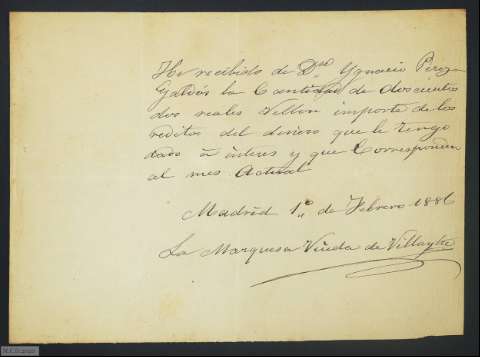 He recibido de Dn Ygnacio Perez
Galdós la Cantidad de doscientos
dos reales Vellon importe de los
reditos del dinero que le tengo
dado á interes y que Corresponden
al mes Actual
Madrid 1º de Febrero 1886
La Marquesa Viuda de